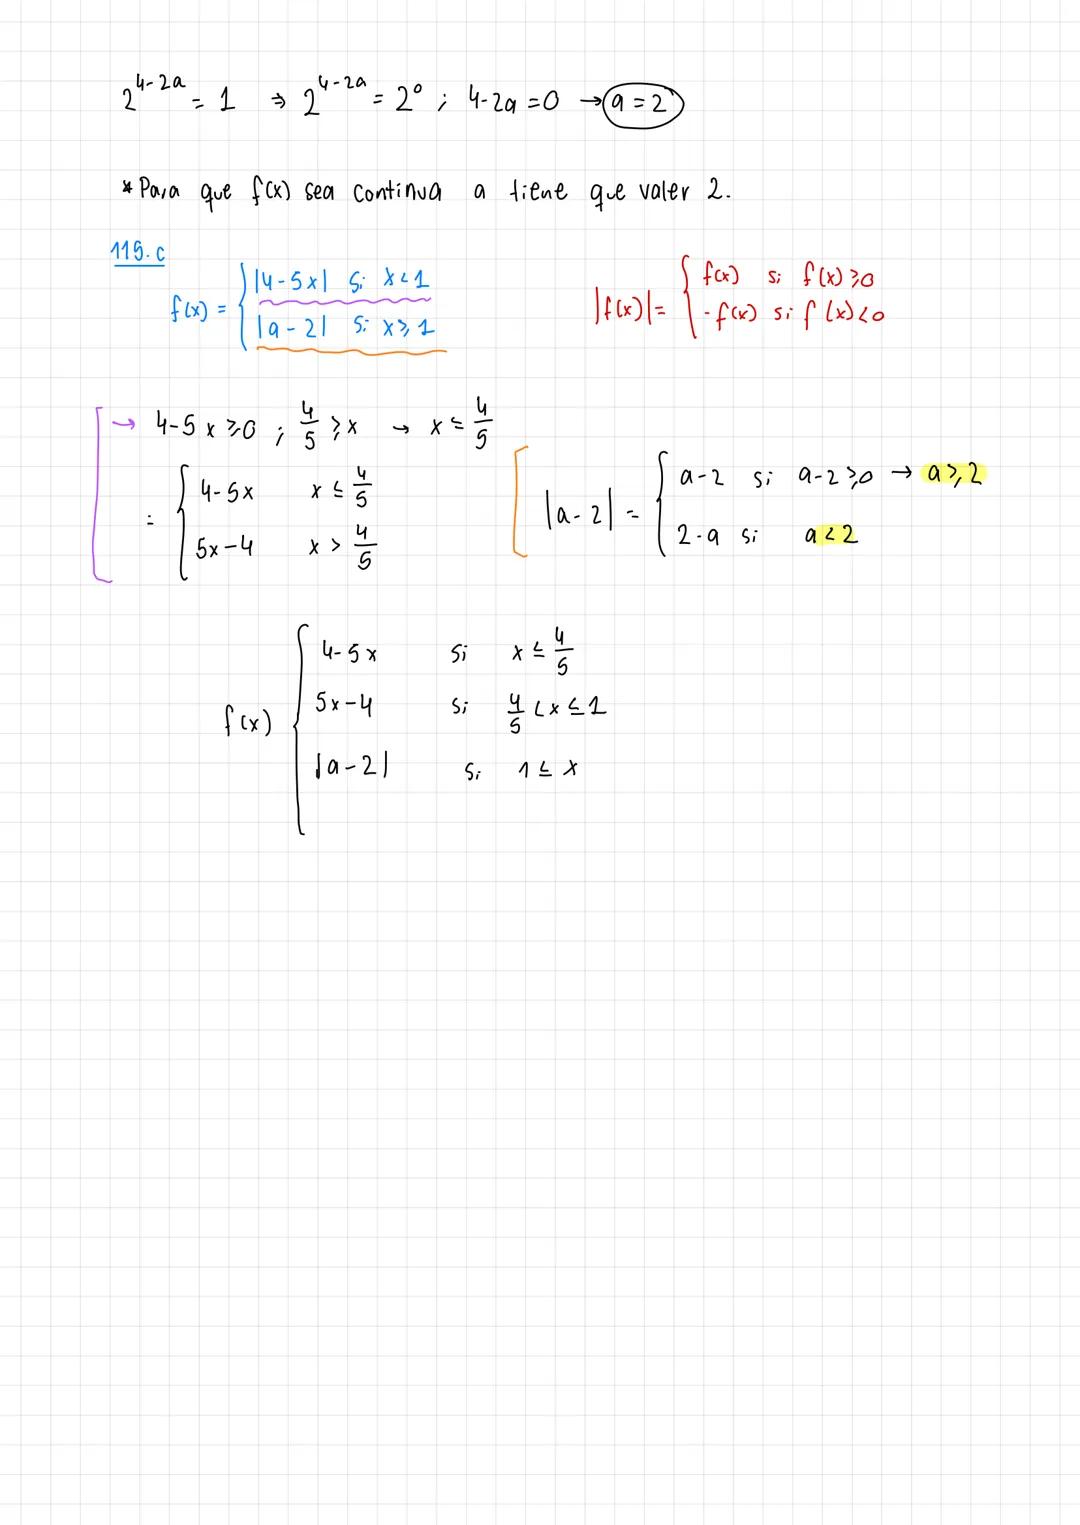 2^{4-2a} = 1 ⇒ 2^{4-2a} = 2^0 ; 4-2a = 0 → a = 2
* Para que f(x) sea continua a tiene que valer 2.
115.c
f(x) = { |4-5x| si x<1
|a-2| si x≥1
|f(x)| = { f(x) si f(x)≥0
-f(x) si f(x)<0
→ 4-5x≥0 ; 4/5 ≥ x → x ≤ 4/5
= { 4-5x x ≤ 4/5
5x-4 x > 4/5
|a-2| = { a-2 si a-2≥0 → a≥2
2-a si a<2
f(x) { 4-5x si x ≤ 4/5
5x-4 si 4/5 < x ≤ 1
|a-2| si 1 ≤ x